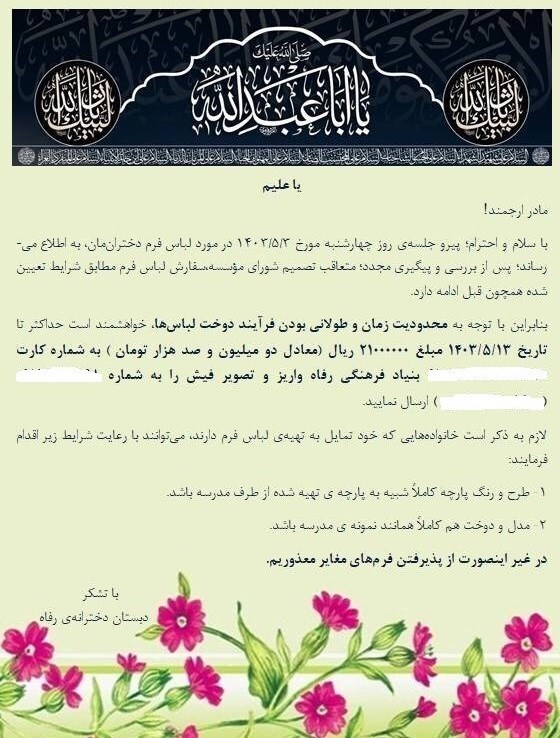 صلی الله علیک
یا ابا عبد الله
لبیک یا ثار الله
لبیک یا ثار الله
یا علیم
مادر ارجمند!
با سلام و احترام؛ پیرو جلسه‌ی روز چهارشنبه مورخ ۱۴۰۳/۵/۳ در مورد لباس فرم دختران‌مان، به اطلاع می-
رساند؛ پس از بررسی و پیگیری مجدد؛ متعاقب تصمیم شورای مؤسسه،سفارش لباس فرم مطابق شرایط تعیین
شده همچون قبل ادامه دارد.
بنابراین با توجه به محدودیت زمان و طولانی بودن فرآیند دوخت لباس‌ها، خواهشمند است حداکثر تا
تاریخ ۱۴۰۳/۵/۱۳ مبلغ ۲۱۰۰۰۰۰۰ ریال (معادل دو میلیون و صد هزار تومان ) به شماره کارت
بنیاد فرهنگی رفاه واریز و تصویر فیش را به شماره
( ) ارسال نمایید.
لازم به ذکر است خانواده‌هایی که خود تمایل به تهیه‌ی لباس فرم دارند، می‌توانند با رعایت شرایط زیر اقدام
فرمایند:
۱- طرح و رنگ پارچه کاملاً شبیه به پارچه ی تهیه شده از طرف مدرسه باشد.
۲- مدل و دوخت هم کاملاً همانند نمونه ی مدرسه باشد.
در غیر اینصورت از پذیرفتن فرم‌های مغایر معذوریم.
با تشکر
دبستان دخترانه‌ی رفاه